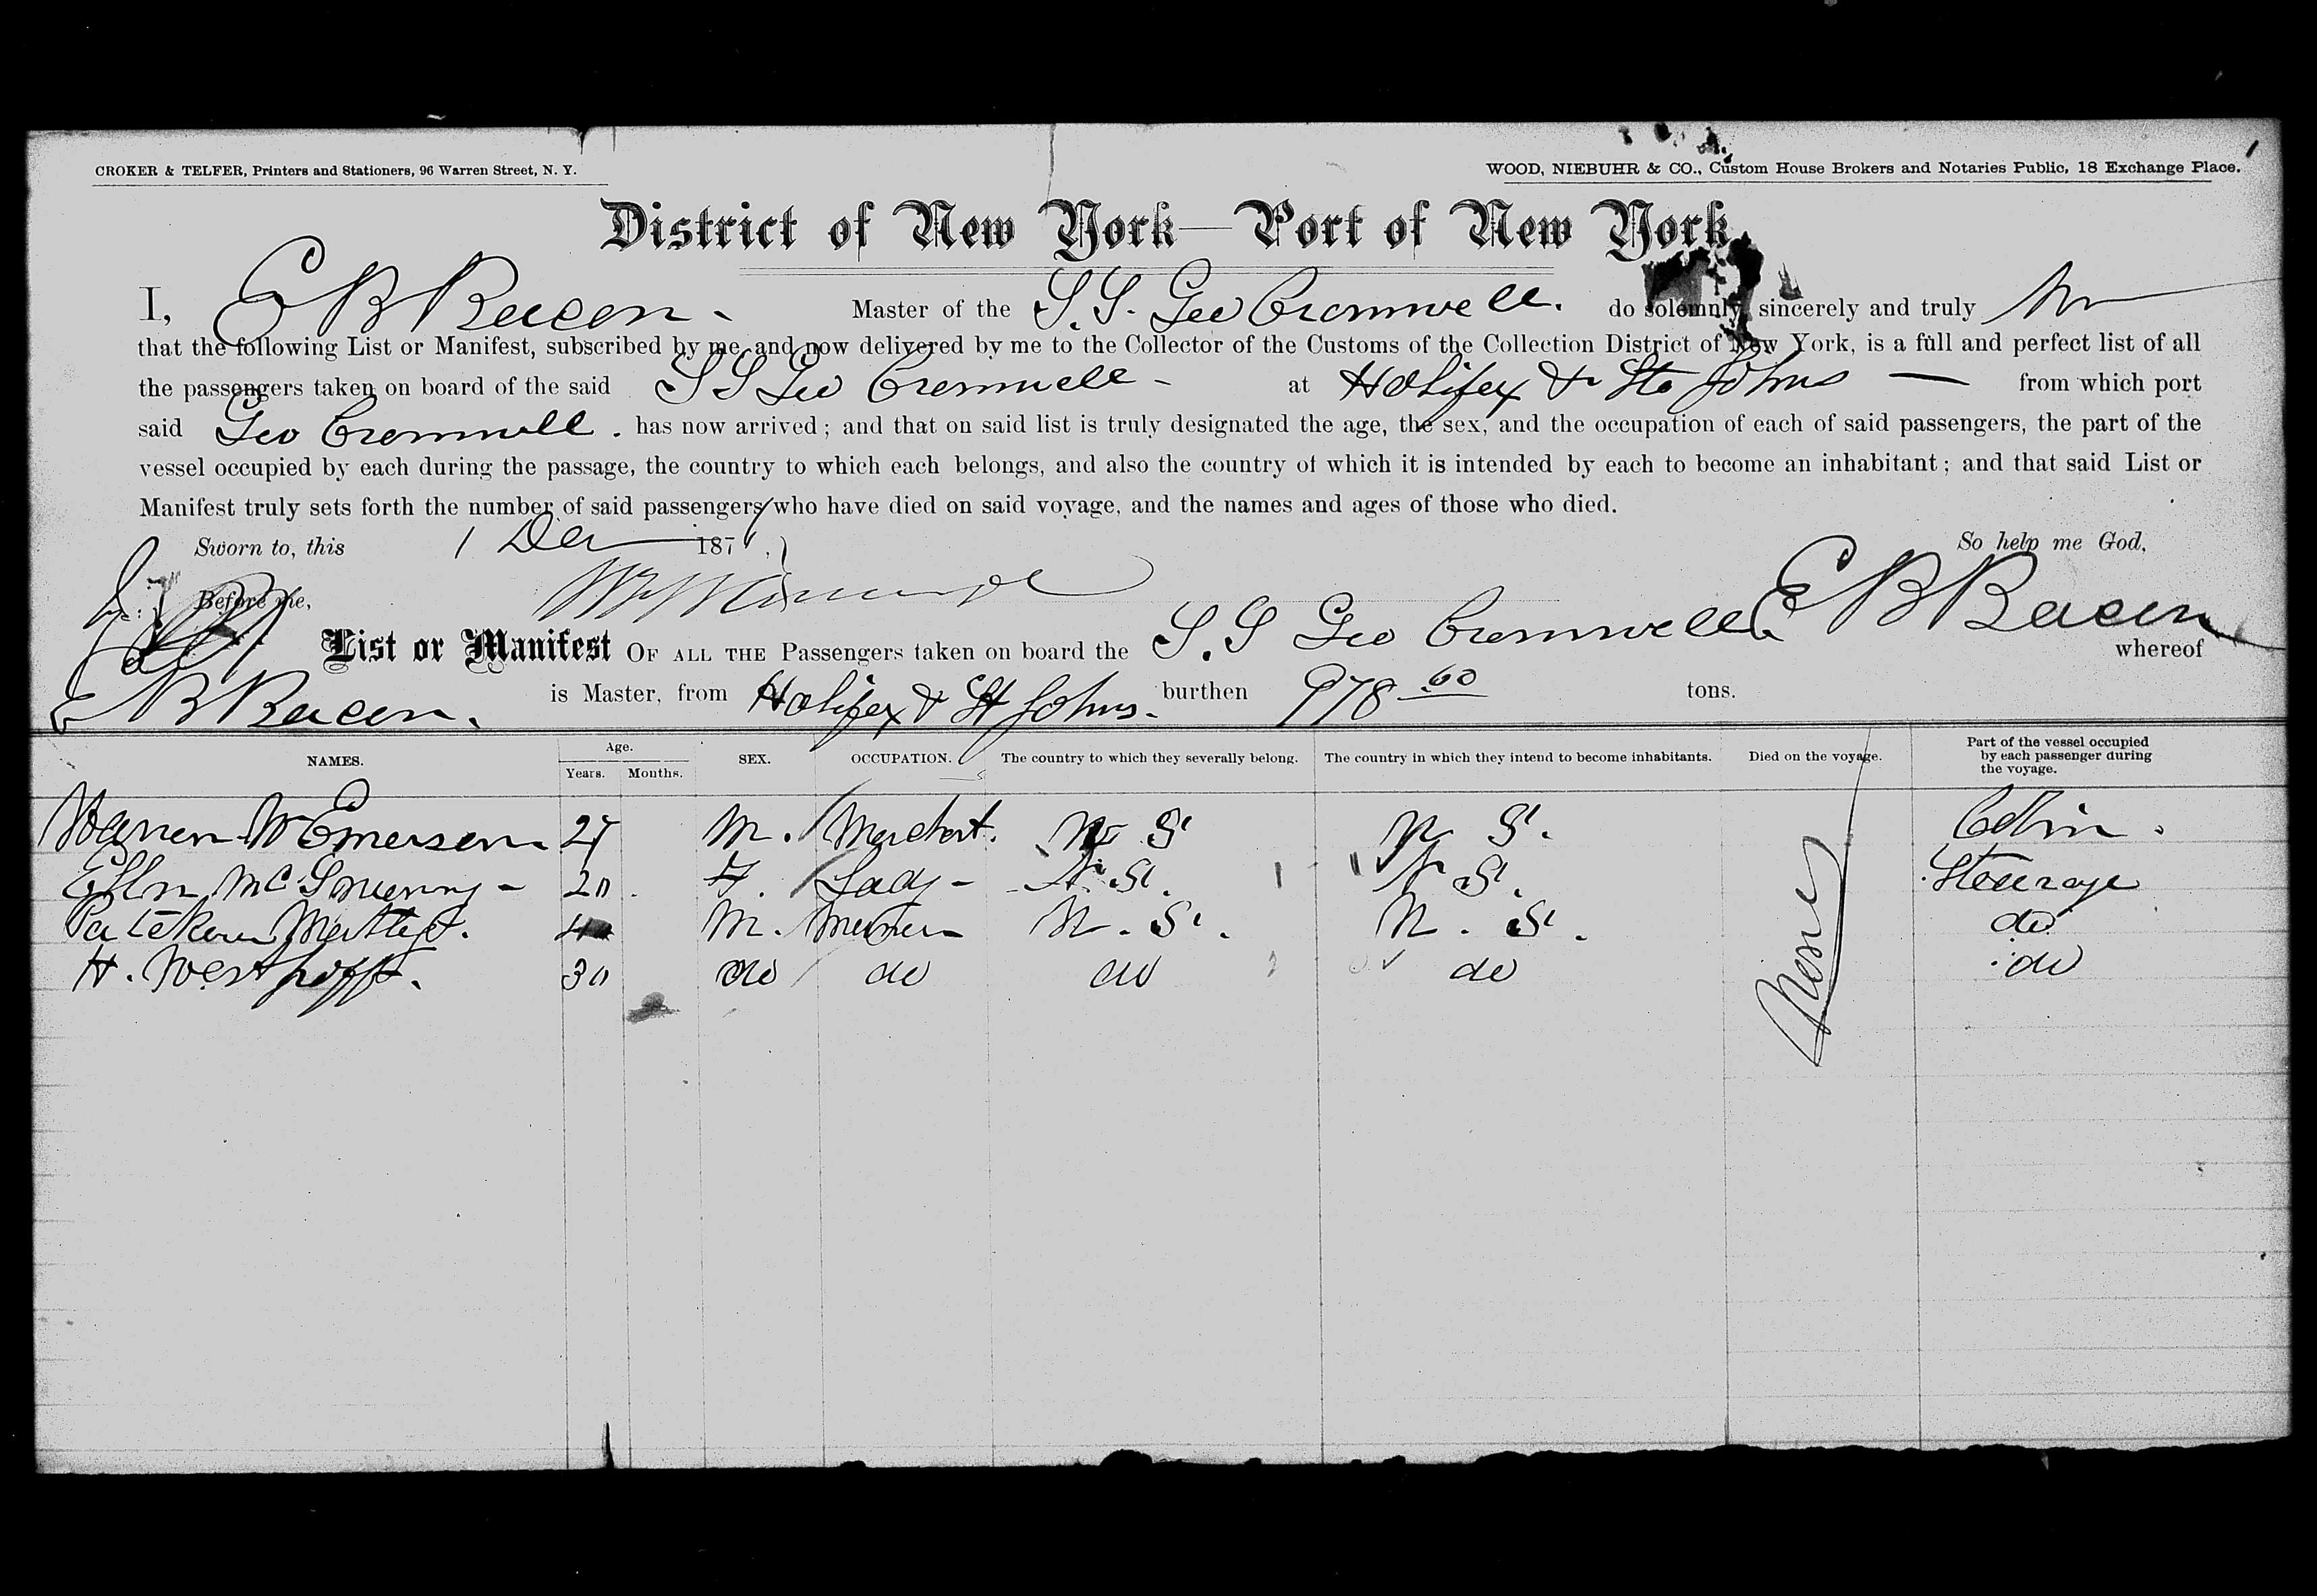 CROKER & TELFER, Printers and Stationers, 96 Warren Street, N. Y.
WOOD, NIEBUHR & CO., Custom House Brokers and Notaries Public, 18 Exchange Place.
District of New York—Port of New York,
I, E B Bacon - Master of the S.S. Geo Cromwell. do solemnly, sincerely and truly
that the following List or Manifest, subscribed by me, and now delivered by me to the Collector of the Customs of the Collection District of New York, is a full and perfect list of all
the passengers taken on board of the said S S Geo Cromwell - at Halifax & St Johns — from which port
said Geo Cromwell. has now arrived; and that on said list is truly designated the age, the sex, and the occupation of each of said passengers, the part of the
vessel occupied by each during the passage, the country to which each belongs, and also the country of which it is intended by each to become an inhabitant; and that said List or
Manifest truly sets forth the number of said passengers who have died on said voyage, and the names and ages of those who died.
Sworn to, this 1 Dec 187 So help me God,
Before me, E B Bacon
List or Manifest OF ALL THE Passengers taken on board the S.S Geo Cromwell whereof
E B Bacon. is Master, from Halifax & St Johns- burthen 978 60 tons.
NAMES. Age. Years. Months. SEX. OCCUPATION. The country to which they severally belong. The country in which they intend to become inhabitants. Died on the voyage. Part of the vessel occupied by each passenger during the voyage.
Warren W Emerson 27 M. Merchant. N S N S. Cabin.
Ellen McSweeny - 20 F. Lady - N. S. N S. Steerage
M. N. S. N. S. do
H. Westhofft. 30 do do do do do
None